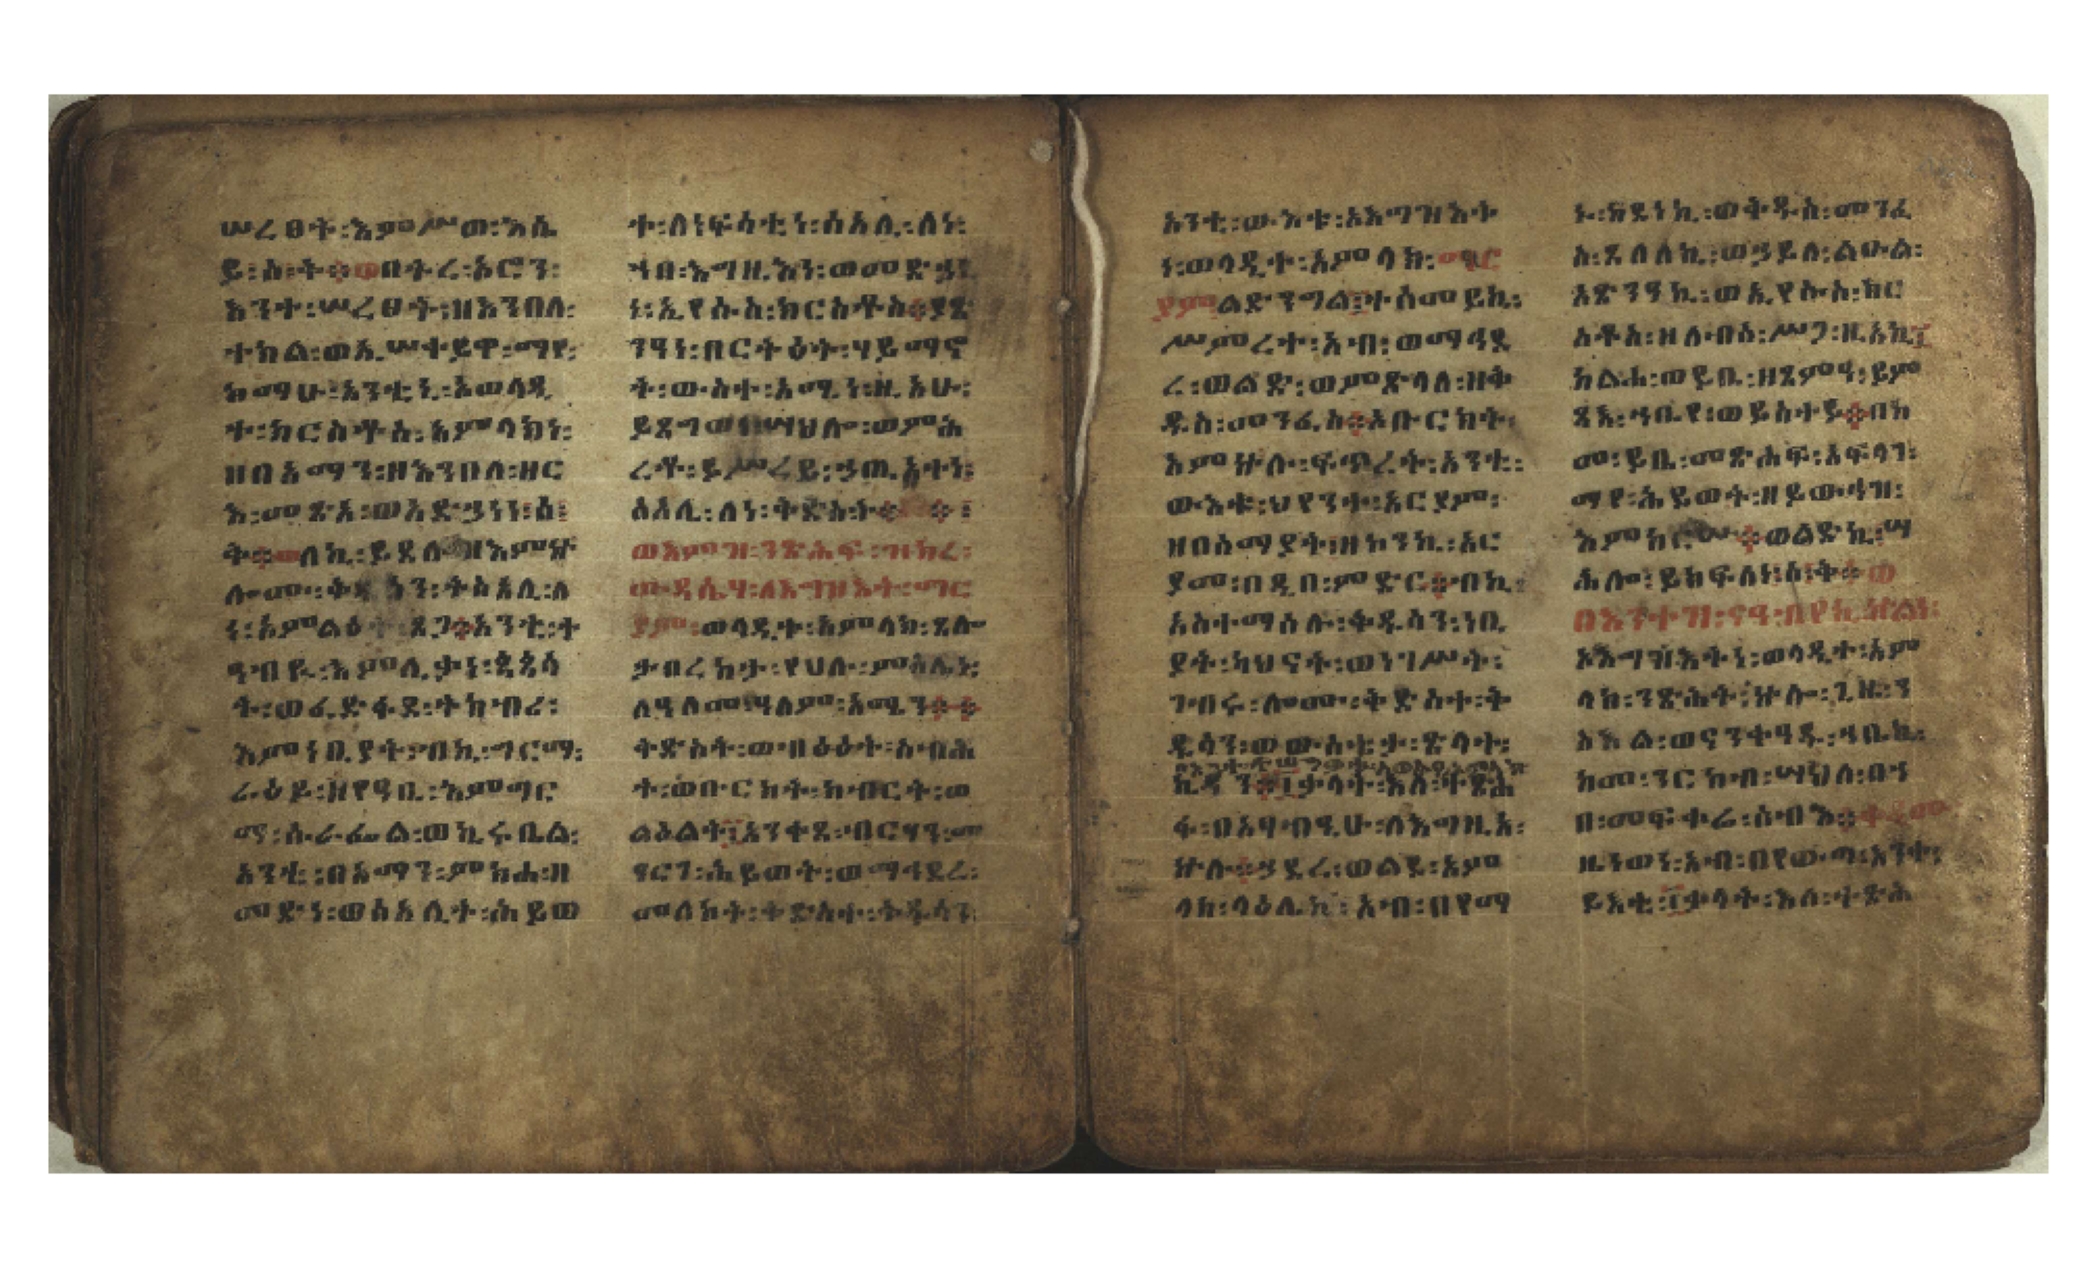 ሠረፀት፡እምሥወ፡እሴ
ይ፡ስ፡ት፡ወበትረ፡አሮን፡
እንተ፡ሠረፀት፡ዘእንበለ፡
ተከል፡ወኢሠተይዋ፡ማየ፡
ከማሁ፡አንቲኒ፡አወላዲ
ተ፡ክርስቶስ፡አምላክነ፡
ዘበአማን፡ዘእንበለ፡ዘር
እ፡መጽአ፡ወአድኃነነ፡ስ፡
ት፡ወለኪ፡ይደሉ፡ዘእምኵ
ሎሙ፡ቅዱሳን፡ትስአሊ፡ለ
ነ፡እምልዕት፡ጸጋ፡አንቲ፡ት
ዓብዪ፡እምሊቃነ፡ጳጳሳ
ት፡ወፈድፋደ፡ተከብሪ፡
እምነቢያት፡ብኪ፡ግርማ፡
ራዕይ፡ዘየዓቢ፡እምግር
ማ፡ሱራፌል፡ወኪሩቤል፡
አንቲ፡በአማን፡ምክሐ፡ዘ
መድነ፡ወሰአሊተ፡ሕይወ
ት፡ለነፍሳቲነ፡ሰአሊ፡ለነ፡
ኀበ፡እግዚእነ፡ወመድኃኒ
ነ፡ኢየሱስ፡ክርስቶስ፡ያጽ
ንዓነ፡በርትዕት፡ሃይማኖ
ት፡ውስተ፡አሚነ፡ዚአሁ፡
ይጸግወነ፡ሣህሎ፡ወምሕ
ረቶ፡ይሥረይ፡ኃጢአተነ፡
ሰአሊ፡ለነ፡ቅድስት፡
ወእምዝ፡ንጽሕፍ፡ዝክረ፡
ውዳሴሃ፡ለእግዝእት፡ማር
ያም፡ወላዲተ፡አምላክ፡ጸሎ
ታ፡በረከታ፡የሀሉ፡ምስሌነ፡
ለዓለመ፡ዓለም፡አሜን፡
ቅድስት፡ወብዕዕት፡ስብሕ
ት፡ወቡርክት፡ክብርት፡ወ
ልዕልት፡አንቀጸ፡ብርሃን፡መ
ዓርገ፡ሕይወት፡ወማኅደረ፡
መለኮት፡ቅድስተ፡ቅዱሳን
አንቲ፡ውእቱ፡አእግዝእት
ነ፡ወላዲተ፡አምላክ፡ማር
ያምልድንግል፡ተሰመይኪ፡
ሥምረተ፡አብ፡ወማኅደ
ረ፡ወልድ፡ወምጽላለ፡ዘቅ
ዱስ፡መንፈስ፡አቡርክት፡
እምኵሉ፡ፍጥረት፡አንቲ፡
ውእቱ፡ህየንተ፡አርያም፡
ዘበሰማያት፡ዘኮንኪ፡አር
ያመ፡በዲበ፡ምድር፡ብኪ፡
አስተማሰሉ፡ቅዱሳን፡ነቢ
ያት፡ካህናት፡ወነገሥት፡
ገብሩ፡ሎሙ፡ቅድስተ፡ቅ
ዱሳን፡ወውስቴታ፡ጽላት፡
ኪዳን፡፲ቃላት፡እለ፡ተጽሕ
ፋ፡በአፃብዒሁ፡ለእግዚአ፡
ኵሉ፡ኃደረ፡ወልደ፡አም
ላክ፡ላዕሌኪ፡አብ፡በየማ
ኑ፡ክደነኪ፡ወቅዱስ፡መንፈ
ስ፡ጸለለኪ፡ወኃይለ፡ልዑል፡
አጽንዓኪ፡ወኢየሱስ፡ክር
ስቶስ፡ዘለብሰ፡ሥጋ፡ዚአኪ፡
ከልሐ፡ወይቤ፡ዘጸምዓ፡ይም
ጻእ፡ኀቤየ፡ወይስተይ፡በከ
መ፡ይቤ፡መጽሐፍ፡አፍላገ፡
ማየ፡ሕይወት፡ዘይውኅዝ፡
እምከርሡ፡ወልድኪ፡ሣ
ሕሎ፡ይክፍለነ፡ስ፡ት፡ወ
በእንተዝ፡ናዓብየኪ፡ኵልነ፡
ኦእግዝእትነ፡ወላዲተ፡አም
ላክ፡ንጽሕት፡ኵሎ፡ጊዜ፡ን
ስእል፡ወናንቀዓዱ፡ኀቤኪ፡
ከመ፡ንርከብ፡ሣህለ፡በኀ
በ፡መፍቀሬ፡ሰብእ፡
ዜነወነ፡አብ፡በየውጣ፡አንተ፡
ይእቲ፡፲ቃላት፡እለ፡ተጽሕ